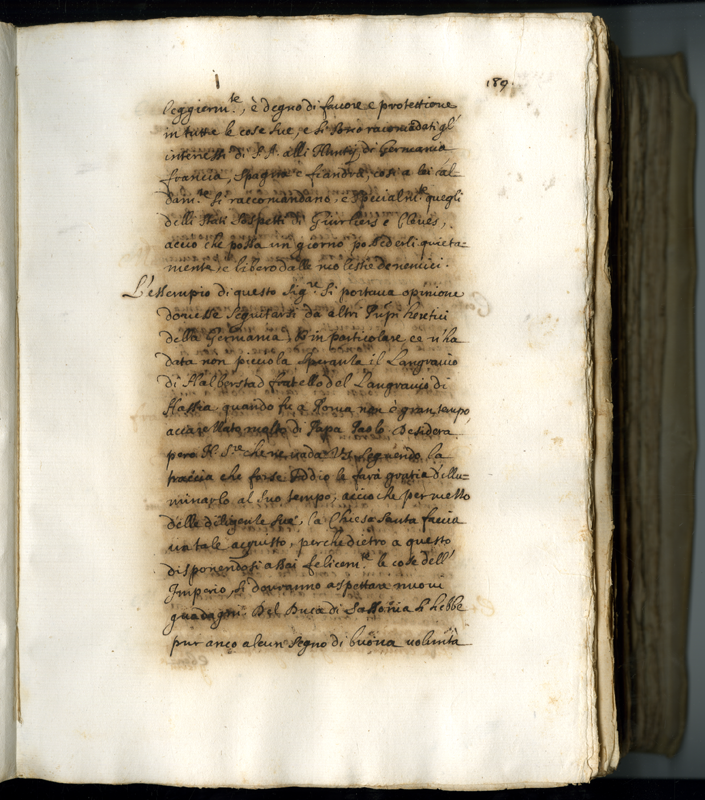 189.
leggierm.te, è degno di fauore e protettione
in tutte le cose sue, e si sono racomãdati gl'
interessi di S. A. alli Nuntij di Germania
francia, Spagna e fiandra, così a lei cal
dam.te si raccomandano, e specialm.te quegli
delli stati sospetti di Giuliers e Cleues,
acciò che possa un giorno possederli quieta=
mente, e libero dalle molestie de nemici.
L'essempio di questo sig.re si portaua opinione
douesse seguitarsi da altri Prñpi heretici
della Germania, et in particolare ce n'ha
data non piccola speranza il Langrauio
di Halberstad fratello del Langrauio di
Hassia quando fu a Roma non è gran tempo,
accarezzato molto di Papa Paolo. Desidera
però N. S.re che ne uada V.S. seguendo la
traccia che forse Iddio le farà gratia d'illu=
minarlo al suo tempo, acciò che per mezzo
delle diligenze sue, la Chiesa santa faccia
un tale acquisto, perche dietro a questo
disponendosi assai felicem.te le cose dell'
Imperio, si douranno aspettare nuoui
guadagni. Del Duca di Sassonia s'hebbe
pur anco alcun segno di buona uolontà